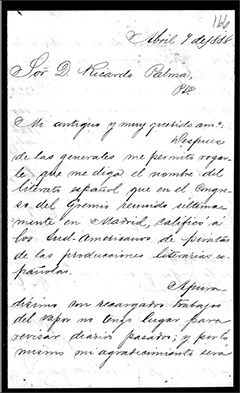 166
Abril 7 de 1888
Sor D. Ricardo Palma,
Pte.
Mi antiguo y muy querido amº:
Despues
de las generales me permito rogar-
le que me diga el nombre del
literato español que en el Congre-
so del Gremio reunido ultima-
mente en Madrid, calificó á
los Sud-Americanos de piratas
de las producciones literarias es-
pañolas.
Apura-
dísimo con recargado trabajo
del vapor no tengo lugar para
revisar diarios pasados; y por lo
mismo mi agradecimiento sera